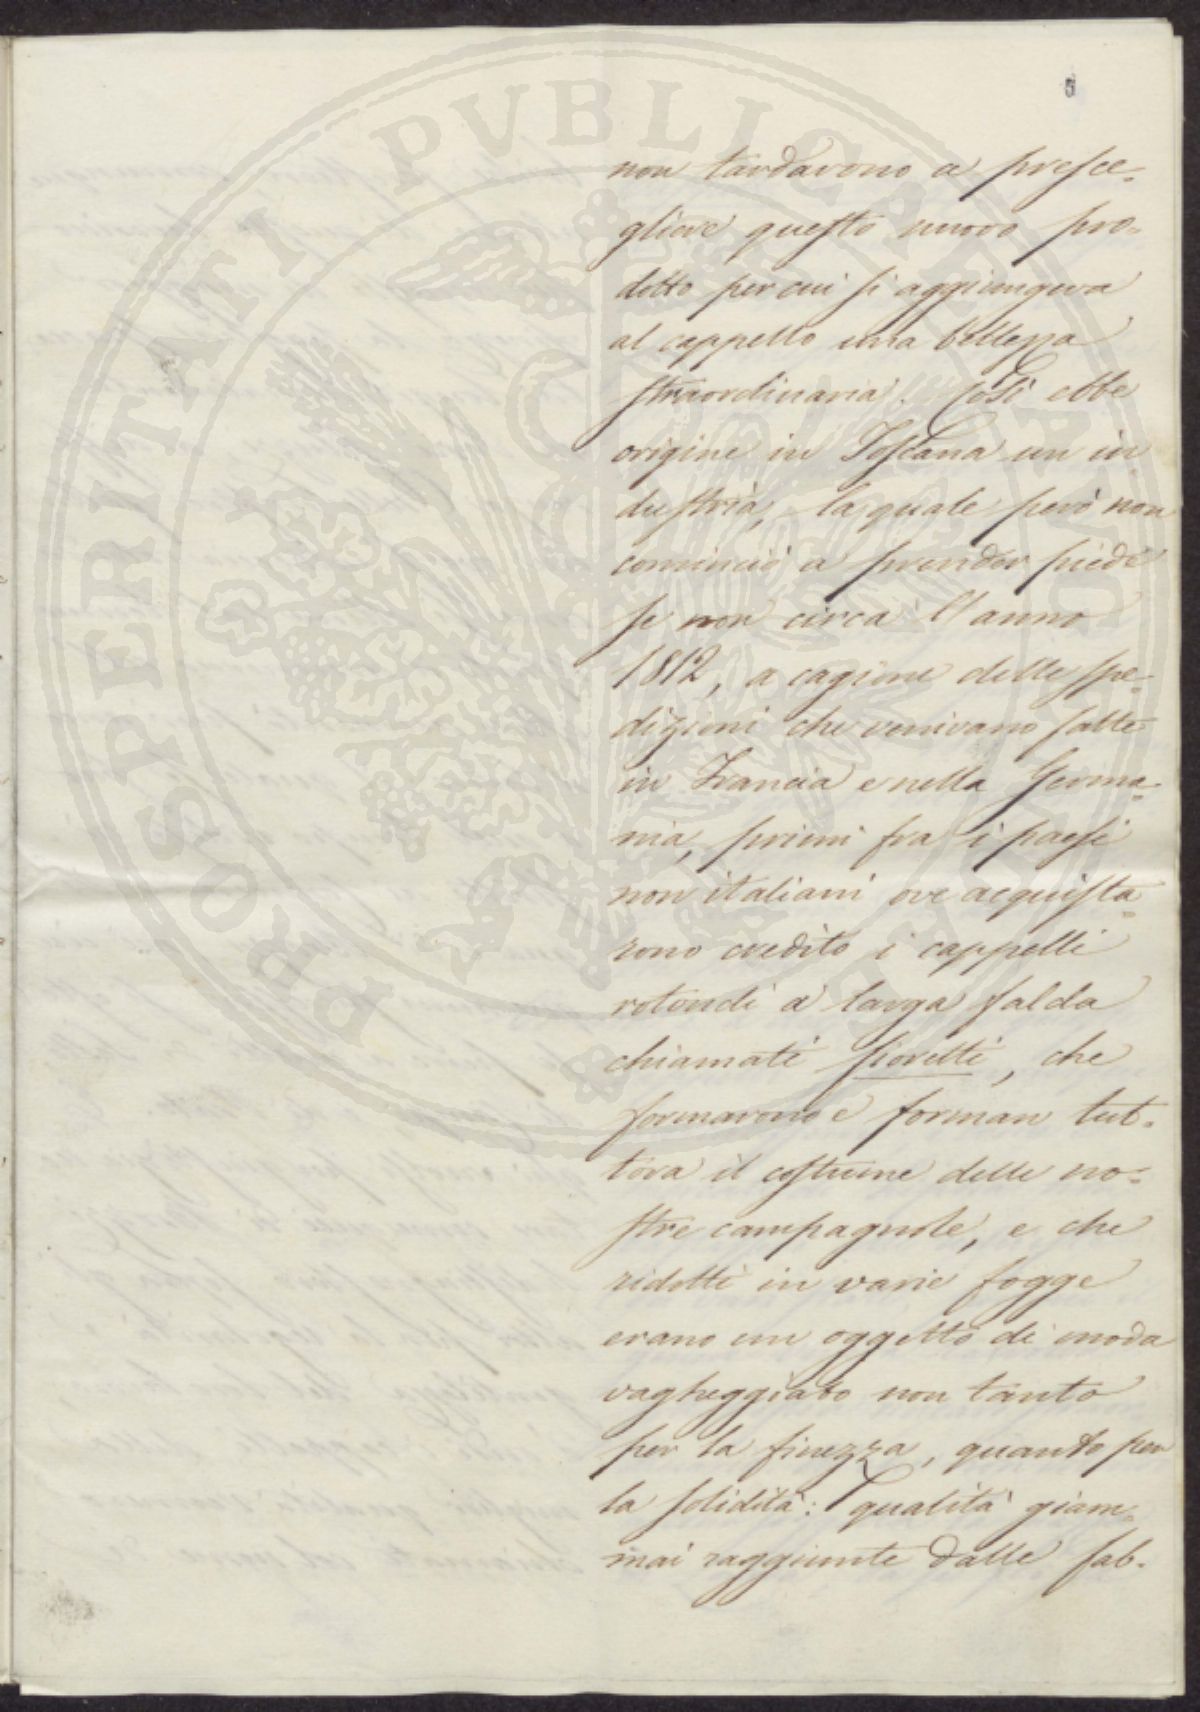 5
non tardarono a presce-
gliere questo nuovo pro-
dotto per cui si aggiungeva
al cappello una bellezza
straordinaria. Così ebbe
origine in Toscana un in-
dustria, la quale però non
cominciò a prender piede
se non circa l'anno
1812, a cagione delle spe-
dizioni che venivano fatte
in Francia e nella Germa-
nia, primi fra i paesi
non italiani ove acquista-
rono credito i cappelli
rotondi a larga falda
chiamati fioretti, che
formarono e forman tut-
tora il costume delle no-
stre campagnole, e che
ridotti in varie fogge
erano un oggetto di moda
vagheggiato non tanto
per la finezza, quanto per
la solidità: qualità giam-
mai raggiunte dalle fab-
PROSPERITATI PVBLICAE AVGENDAE